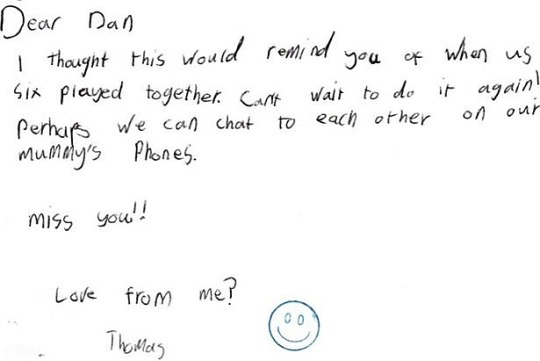 Dear Dan
I thought this would remind you of when us
six played together. Can't wait to do it again!
Perhaps we can chat to each other on our
mummy's Phones.
miss you!!
Love from me?
Thomas